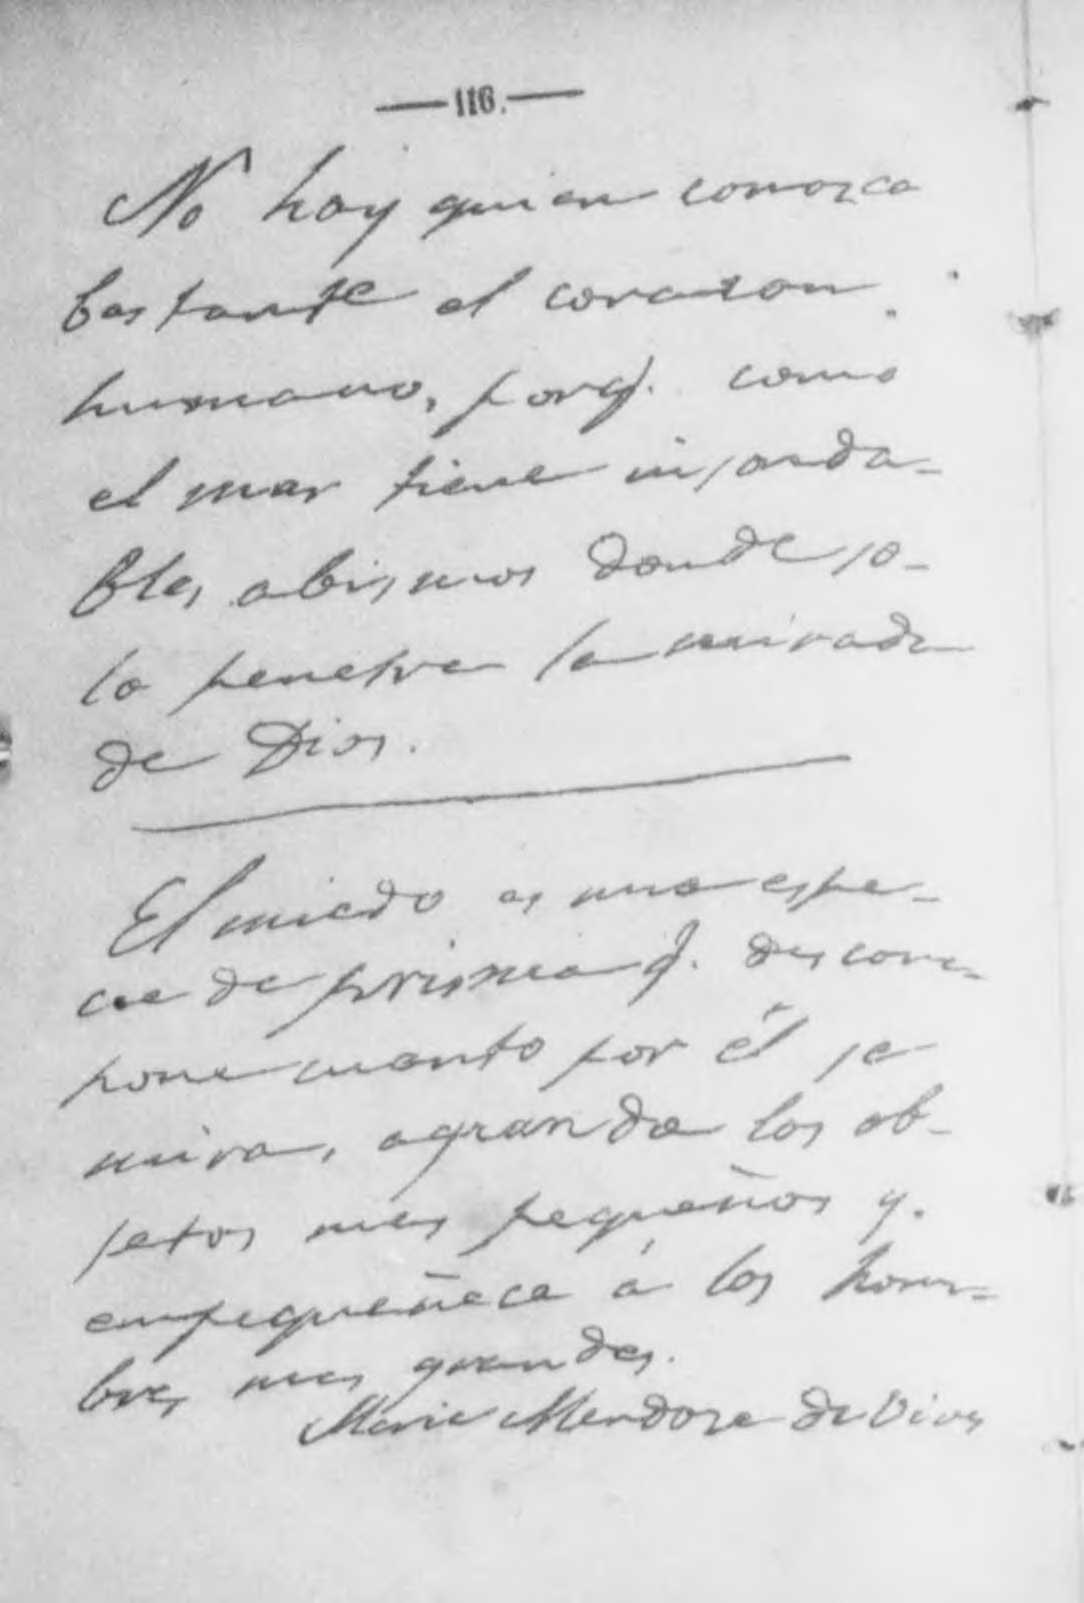 — 116. —
No hay quien conozca
bastante el corazon
humano, porq. como
el mar tiene insonda-
bles abismos donde so-
lo penetra la mirada
de Dios.
El miedo es una espe-
cie de prisma q. descom-
pone cuanto por él se
mira, agranda los ob-
jetos mas pequeños y
empequeñece á los hom-
bres mas grandes.
Maria Mendoza de Vives